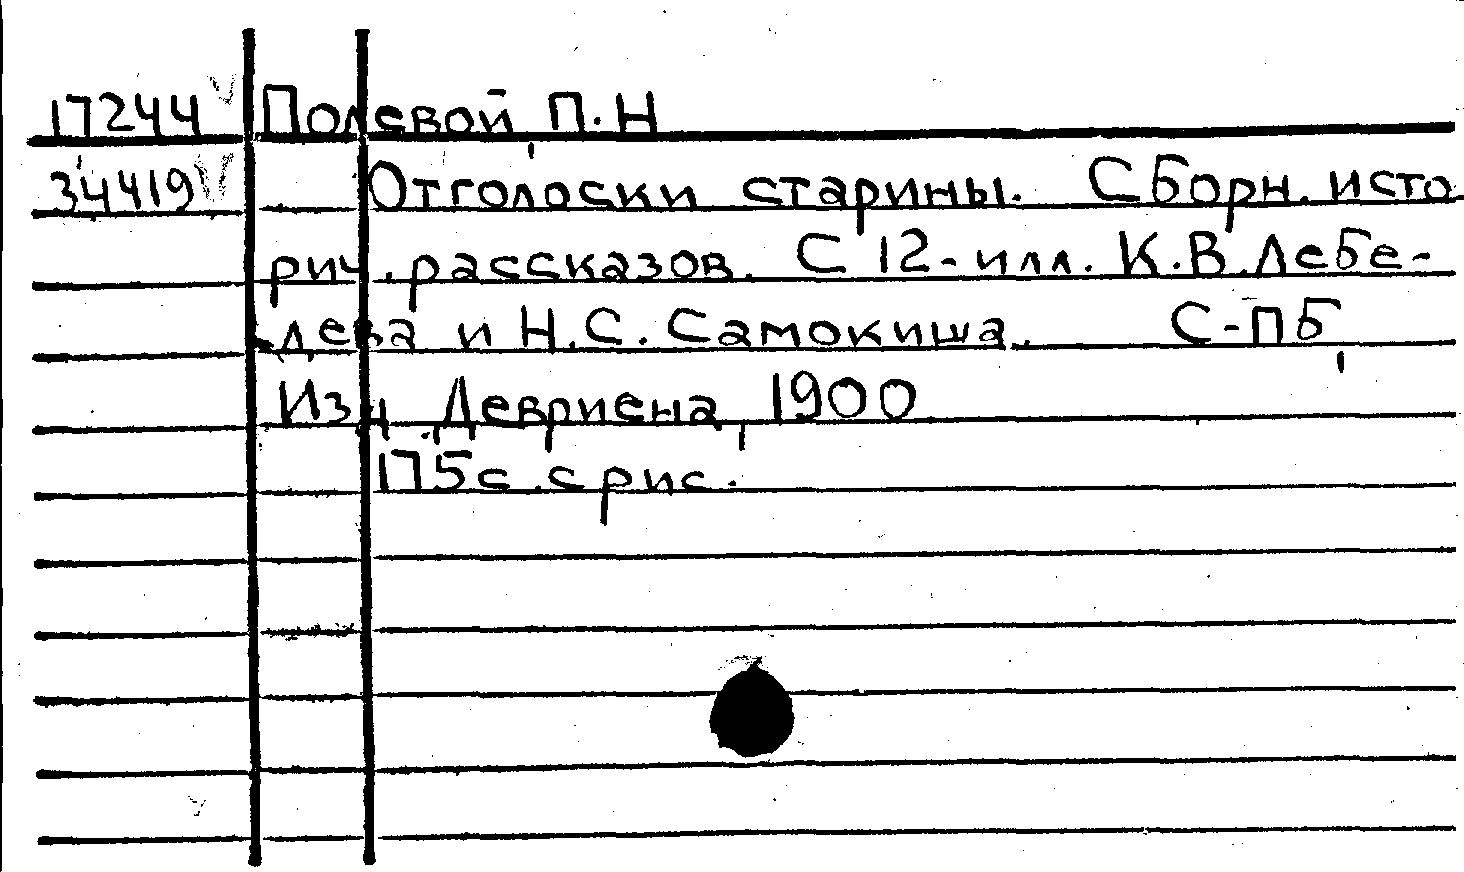 17244 Полевой, П.Н
34419 Отголоски старины. Сборн. исто
рич. рассказов. С 12-илл. К.В.Лебе-
дева и Н.С. Самокиша. С-ПБ,
Изд. Девриена, 1900
175с. с рис.